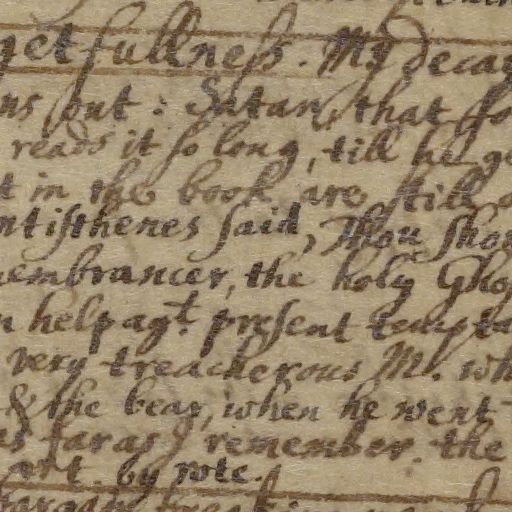 getfullness. My decay
ns out: Satan, that so
reads it so long, till he ge
t in the book are still
ntisthenes said, Thou shou
membrancer, the holy Gho
n help agt. present tempta
very treacherous M. wh
& the bear, when he went
as far as I remember. the
art by rote.
bargain